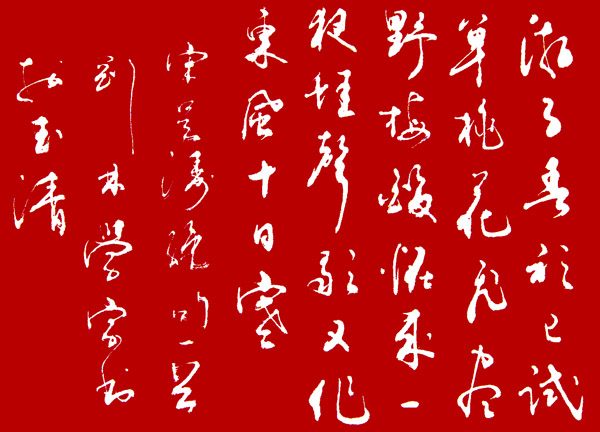 游子春衫已试
单桃花飞尽
野梅酸怪来一
夜蛙聲歇又作
東風十日寒
宋吴涛绝句一首
林學书
于玉清